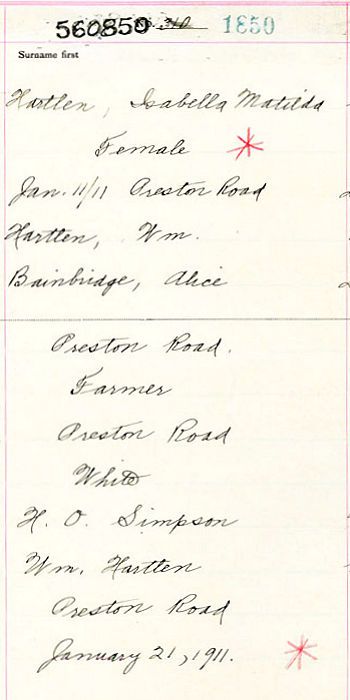 560850 310 1850
Surname first
Hartlen, Isabella Matilda
Female
Jan. 11/11 Preston Road
Hartlen, Wm.
Bainbridge, Alice
Preston Road.
Farmer
Preston Road
White
H. O. Simpson
Wm. Hartlen
Preston Road
January 21, 1911.